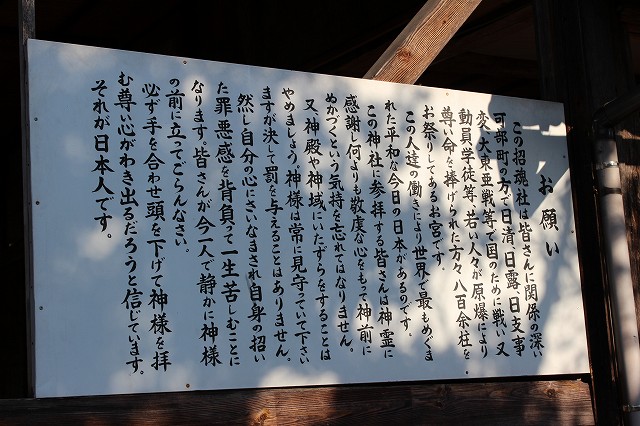 お願い
この招魂社は皆さんに関係の深い
可部町の方で日清、日露、日支事
変、大東亜戦等で国のために戦い又
動員学徒等、若い人々が原爆により
尊い命を捧げられた方々八百余柱を
お祭りしてあるお宮です。
この人達の働きにより世界で最もめぐま
れた平和な今日の日本があるのです。
この神社に参拝する皆さんは神霊に
感謝し何よりも敬虔な心をもって神前に
ぬかづくという気持を忘れてはなりません。
又、神殿や神域にいたずらをすることは
やめましょう。神様は常に見守っていて下さい
ますが決して罰を与えることはありません。
然し自分の心にさいなまされ自身の招い
た罪悪感を背負って一生苦しむことに
なります。皆さんが今一人で静かに神様
の前に立ってごらんなさい。
必ず手を合わせ頭を下げて神様を拝
む尊い心がわき出るだろうと信じています。
それが日本人です。